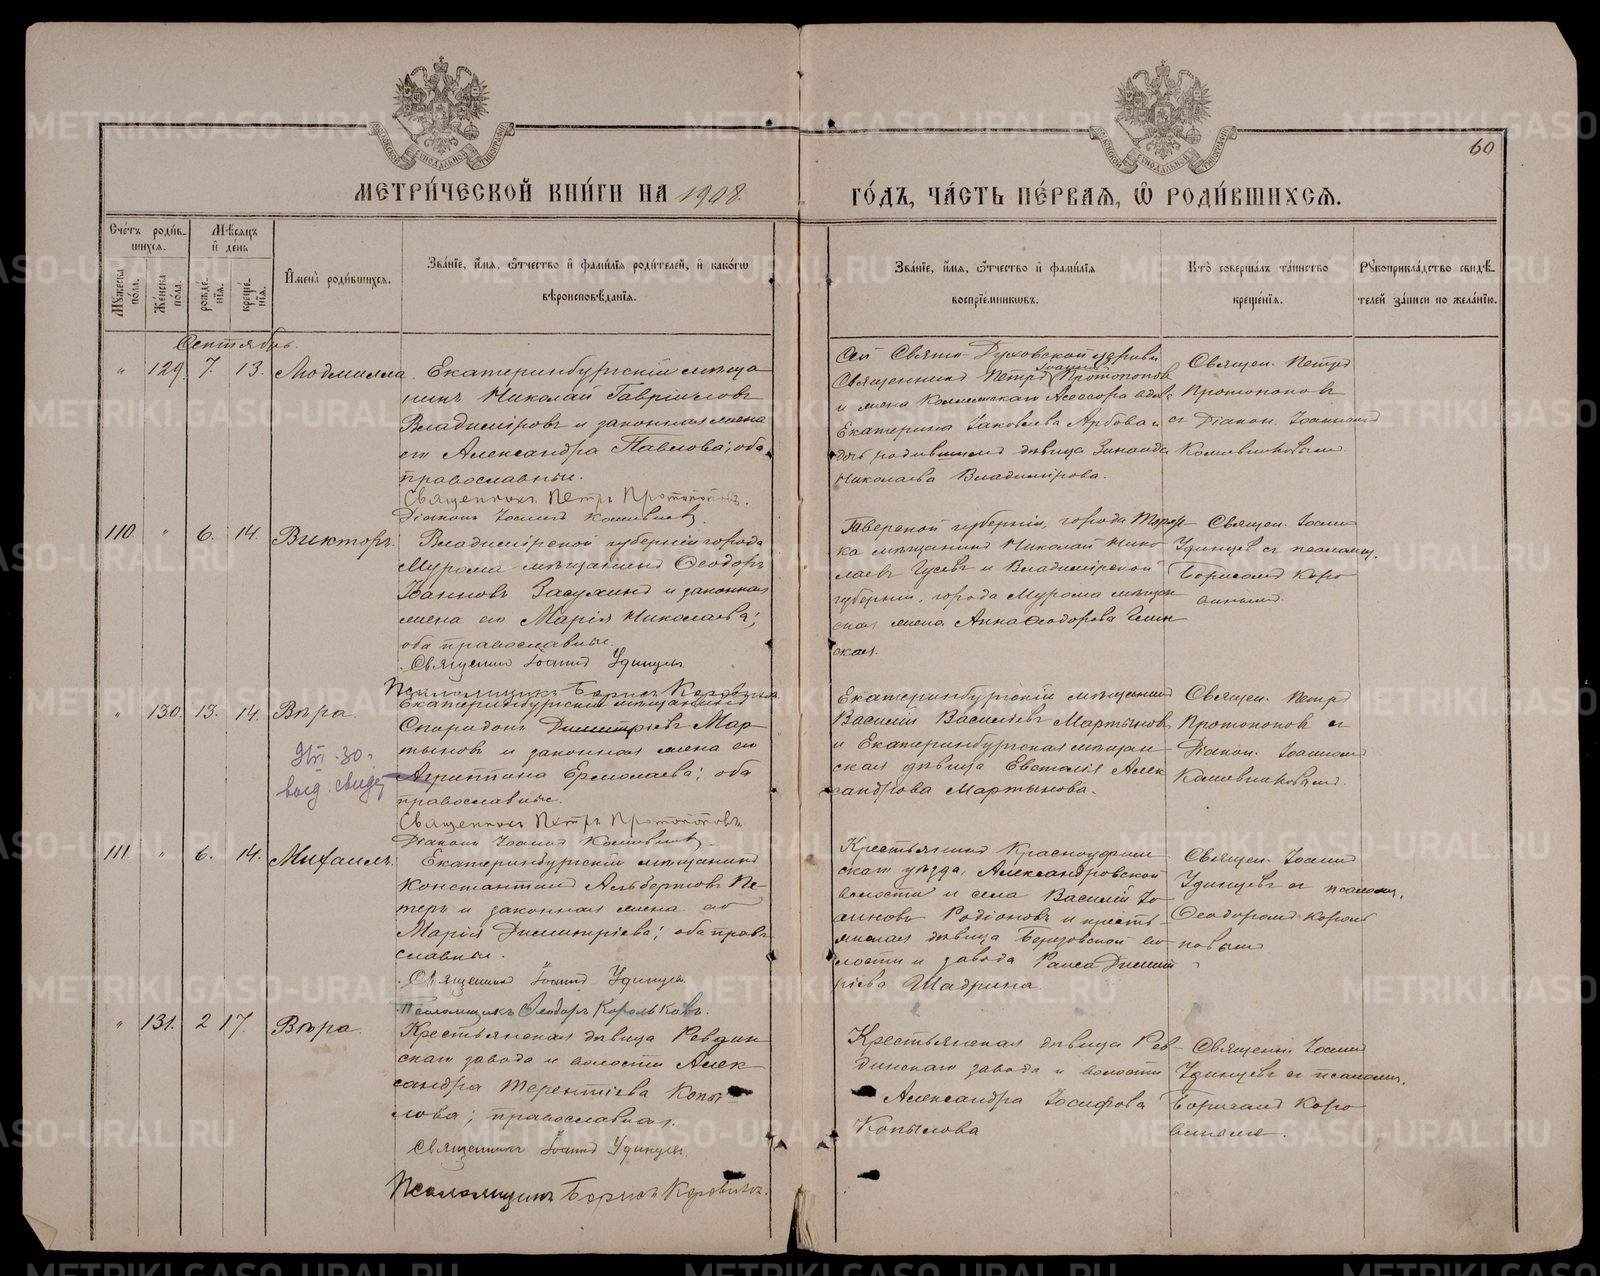 МЕТРИ́ЧЕСКОЙ КНИ́ГИ НА 1908.
ГО́ДЪ, ЧА́СТЬ ПЕ́РВАЯ, Ѿ РОДИ́ВШИХСЯ.
60
Сче́тъ роди́в-
шихся.
Му́жеска по́ла.
Же́нска по́ла.
Мѣ́сяцъ и де́нь
рожде́-
нія.
креще́-
нія.
И́мена роди́вшихся.
Зва́нїе, и́мя, ѻ҆́тчество и фами́лїя роди́телей, и како́гѡ
вѣроисповѣ́данїя.
Зва́нїе, и́мя, ѻ҆́тчество и фами́лїя
воспрїе́мниковъ.
Кто̀ соверша́лъ та́инство
креще́нїя.
Рꙋкоприкла́дство свидѣ́-
телей за́писи по жела́нїю.
Сентябрь.
" 129. 7. 13. Людмилла
Екатеринбургскій мѣща
нинъ Николай Гавріиловъ
Владиміровъ и законная жена
его Александра Павлова; оба
православные.
Священникъ Петръ Протопоповъ.
Діаконъ Іоаннъ
Сей Свято-Духовской церкви
Священникъ Петръ Іоанновъ Протопоповъ
и жена Коллежскаго Ассесора вдова
Екатерина Іаковлева Арбова и
дочь родившаго дѣвица Зинаида
Николаева Владимірова.
Священ. Петръ
Протопоповъ
съ Діакон. Іоанномъ
110. " 6. 14. Викторъ.
Владимірской губерніи города
Мурома мѣщанинъ Ѳеодоръ
Іоанновъ Засухинъ и законная
жена его Марія Николаева;
оба православные.
Священникъ Іоаннъ Удинцевъ
Псаломщикъ Борисъ Коровинъ.
Тверской губерніи, города Торж
ка мѣщанинъ Николай Нико
лаевъ Гусевъ и Владимірской
губерніи, города Мурома мѣщан
ская жена Анна Ѳеодорова
ская.
Священ. Іоаннъ
Удинцевъ съ псаломщ.
Борисомъ Коро
винымъ.
" 130. 13. 14. Вѣра.
Екатеринбургскій мѣщанинъ
Спиридонъ Димитріевъ Мар
тыновъ и законная жена его
Агриппина Ермолаева; оба
православные.
Священникъ Петръ Протопоповъ
Діаконъ Іоаннъ
Екатеринбургскій мѣщанинъ
Василій Васильевъ Мартыновъ
и Екатеринбургская мѣщан
ская дѣвица Евсталія Алек
сандрова Мартынова.
Священ. Петръ
Протопоповъ съ
Діакон. Іоанномъ
30.
выд. свид.
111. " 6. 14. Михаилъ.
Екатеринбургскій мѣщанинъ
Константинъ Альбертовъ Пе-
теръ и законная жена его
Марія Димитріева; оба право
славные.
Священникъ Іоаннъ Удинцевъ
Псаломщикъ Ѳеодоръ Корольковъ.
Крестьянинъ Красноуфим
скаго уѣзда, Александровской
волости и села Василій Іо
анновъ Родіоновъ и кресть
янская дѣвица Березовской во
лости и завода Раиса Димит
ріева Шадрина.
Священ. Іоаннъ
Удинцевъ съ псаломщ.
Ѳеодоромъ Король
ковымъ
" 131. 2 17. Вѣра.
Крестьянская дѣвица Ревдин
скаго завода и волости Алек
сандра Терентіева Копы
лова; православная.
Священникъ Іоаннъ Удинцевъ.
Псаломщикъ Борисъ Коровинъ.
Крестьянская дѣвица Рев
динскаго завода и волости
Александра Іосифова
Копылова
Священ. Іоаннъ
Удинцевъ съ псаломщ.
Борисомъ Коро
винымъ.
METRIKI.GASO-URAL.RU